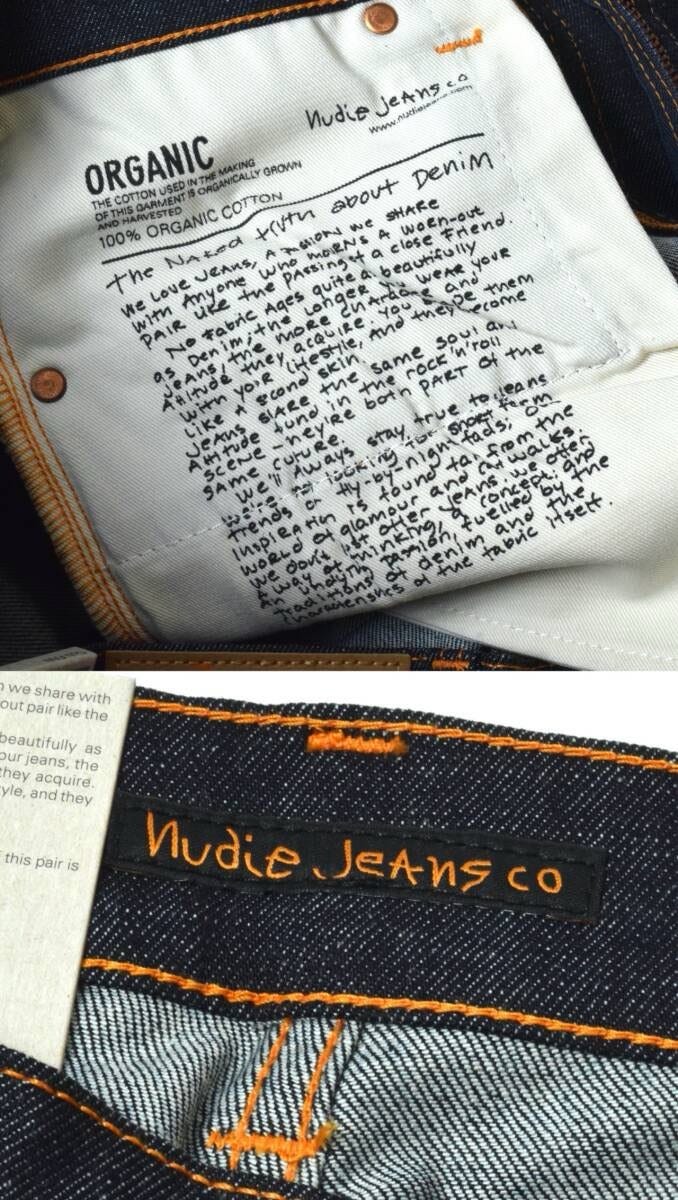 nudie Jeans co
ORGANIC
THE COTTON USED IN THE MAKING
OF THIS GARMENT IS ORGANICALLY GROWN
AND HARVESTED
100% ORGANIC COTTON
the NAKED trUth about Denim
We Love JEANS, A PASSION WE SHARE
with Anyone Who morNS A worn-out
PAIR LIKE the PAssing of a close Friend.
No FAbric Ages quite a beautifully
as Denim, the Longer WEAR YOUR
JEANS, the more CHArActer and
Attitude they acquire. You
with your Lifestyle, And they become
Like A second skin.
JEANS SHARE the same soul and
Attitude fund in the rock'n'roll
scene - they're both PART of the
same cuture.
We'll Always stay true to jeans
looking for short term
trends or fly-by-night fads; Our
inspiratin is found far from the
WORLD of glamour and catwalks.
we don't just offer JEANS. we offer
A way of thinking, a concept, and
An undyin passion, fuelled by the
traditions of denim and the
characteristics of the fabric itself.
n we share with
out pair like the
beautifully as
our jeans, the
they acquire.
yle, and they
this pair is
nudie Jeans co